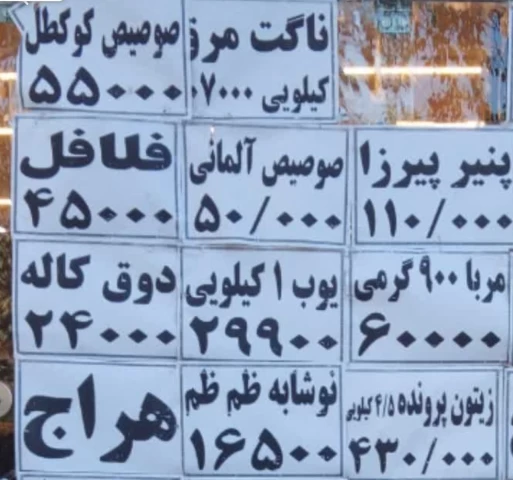 ناگت مرغ
کیلویی ۷۰۰۰
صوصیص کوکطل
۵۵۰۰۰۰
پنیر پیرزا
۱۱۰/۰۰۰
صوصیص آلمانی
۵۰/۰۰۰
فلافل
۴۵۰۰۰
مربا ۹۰۰ گرمی
۶۰۰۰۰
یوب ۱ کیلویی
۲۹۹۰۰
دوق کاله
۲۴۰۰۰
زیتون پرونده ۴/۵ کیلویی
۴۳۰/۰۰۰
نوشابه ظم ظم
۱۶۵۰۰
هراج